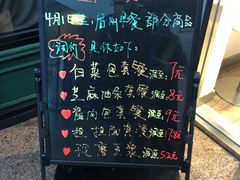 4月1日起,眉州早餐部分商品
调价 具体如下:
白菜包套餐 调至: 7元
芝麻油条套餐 调至: 8元
酱肉包套餐 调至: 9元
担担面套餐 调至: 17.8元
现磨豆浆 调至: 5.2元